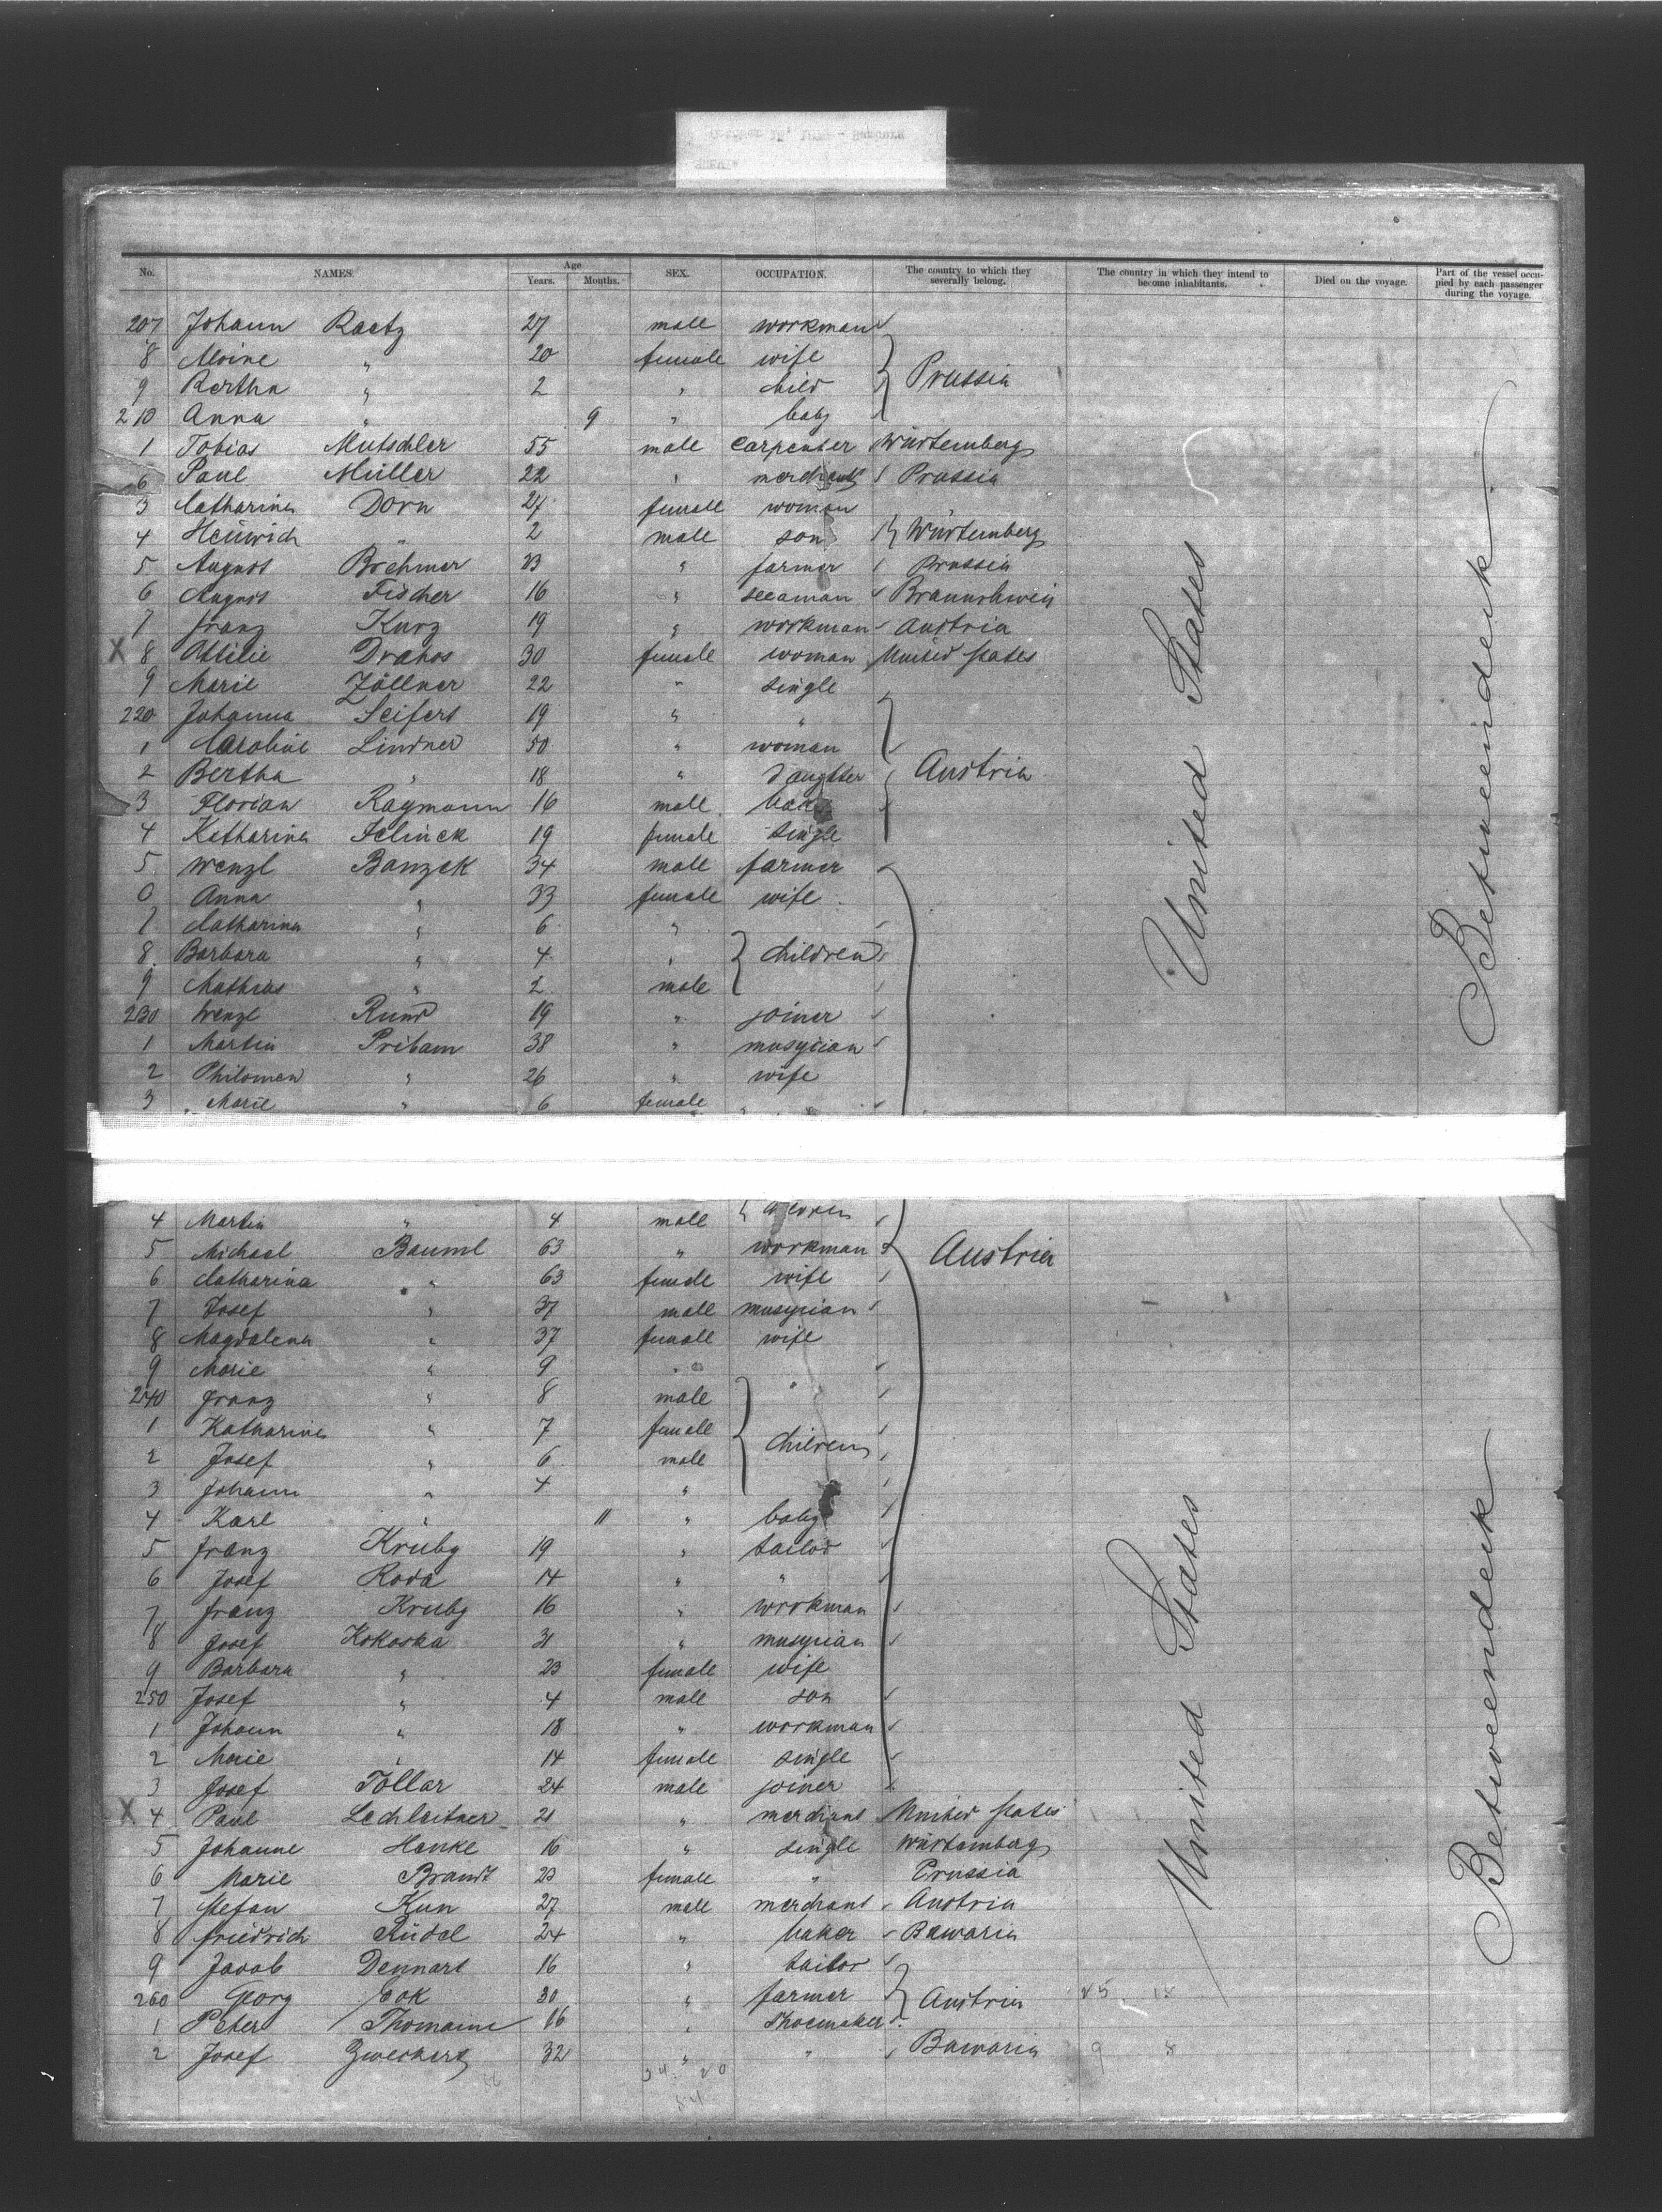 No. NAMES. Age Years. Months. SEX. OCCUPATION. The country to which they severally belong. The country in which they intend to become inhabitants. Died on the voyage. Part of the vessel occupied by each passenger during the voyage.
207 Johann Raatz 27 male workman
8 " 20 female wife
9 Bertha " 2 " child Prussia
210 Anna " 9 " baby
1 Tobias Mutschler 55 male carpenter Würtemberg
6 Paul Müller 22 " merchant Prussia
3 Catharina Dorn 27 female woman
4 Heinrich " 2 male son Würtemberg
5 August Brehmer 23 " farmer Prussia
6 August Fischer 16 " seeaman Braunshweig
7 Franz Kurz 19 " workman Austria
X 8 Ottilie Drahos 30 female woman United States
9 Marie Zöllner 22 " single
220 Johanna Seifert 19 " "
1 Caroline Lindner 50 " woman
2 Bertha " 18 " Daughter Austria
3 Florian Ragmann 16 male
4 Katharina Jelinek 19 female single
5 Wenzl Banzek 34 male farmer
6 Anna " 33 female wife
7 Catharina " 6 "
8 Barbara " 4 " children
9 Mathias " 2 male
230 Wenzl Rund 19 " joiner
1 Martin Pribam 38 " musycian
2 Philomen " 26 " wife
3 Marie " 6 female
4 Martin " 4 male
5 Michael Bauml 63 " workman Austria
6 Catharina " 63 female wife
7 Josef " 37 male musycian
8 Magdalena " 37 female wife
9 Marie " 9 "
240 Franz " 8 male
1 Katharina " 7 female children
2 Josef " 6 male
3 Johann " 4 "
4 Karl " 11 " baby
5 Franz Kruby 19 " tailor
6 Josef Roda 14 " "
7 Franz Kruby 16 " workman
8 Josef Kokoska 31 " musycian
9 Barbara " 23 female wife
250 Josef " 4 male son
1 Johann " 18 " workman
2 Marie " 14 female single
3 Josef Tollar 24 male joiner
X 4 Paul Lechleitner 21 " merchant United States
5 Johanne Hanke 16 " single Würtemberg
6 Marie Brandt 23 female " Prussia
7 Stefan Kun 27 male merchant Austria
8 Friedrich Rüdel 24 " baker Bawaria
9 Jacob Dennart 16 " tailor
260 Georg 30 " farmer Austria
1 Peter Thomann 16 " Shoemaker
2 Josef 32 " " Bawaria
United States
Betweendeck
United States
Betweendeck